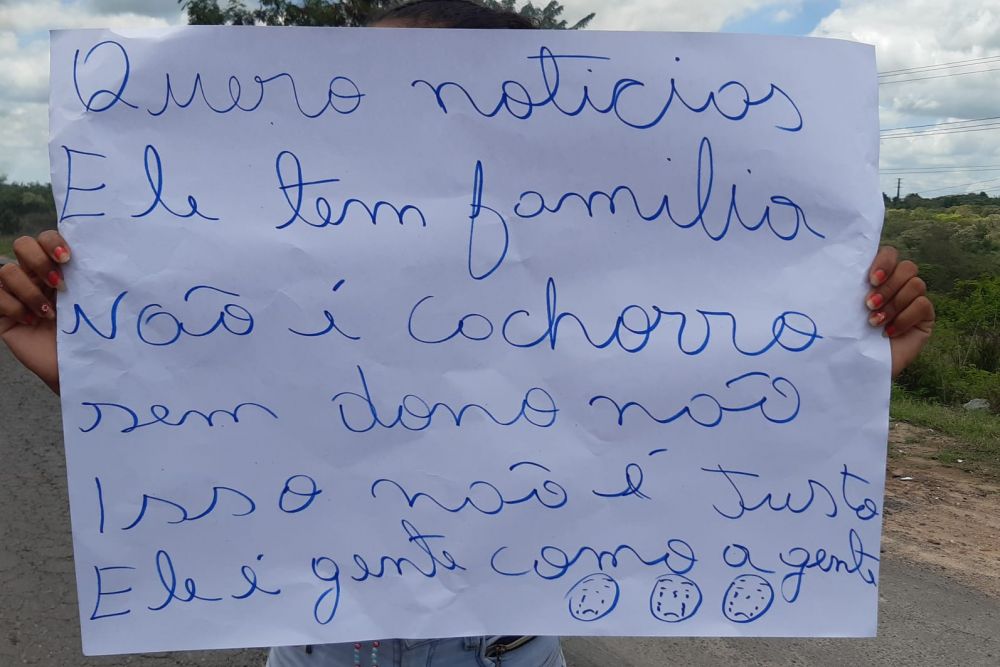 Quero noticias
Ele tem familia
Não é cachorro
sem dono não
Isso não é Justo
Ele é gente como a gente